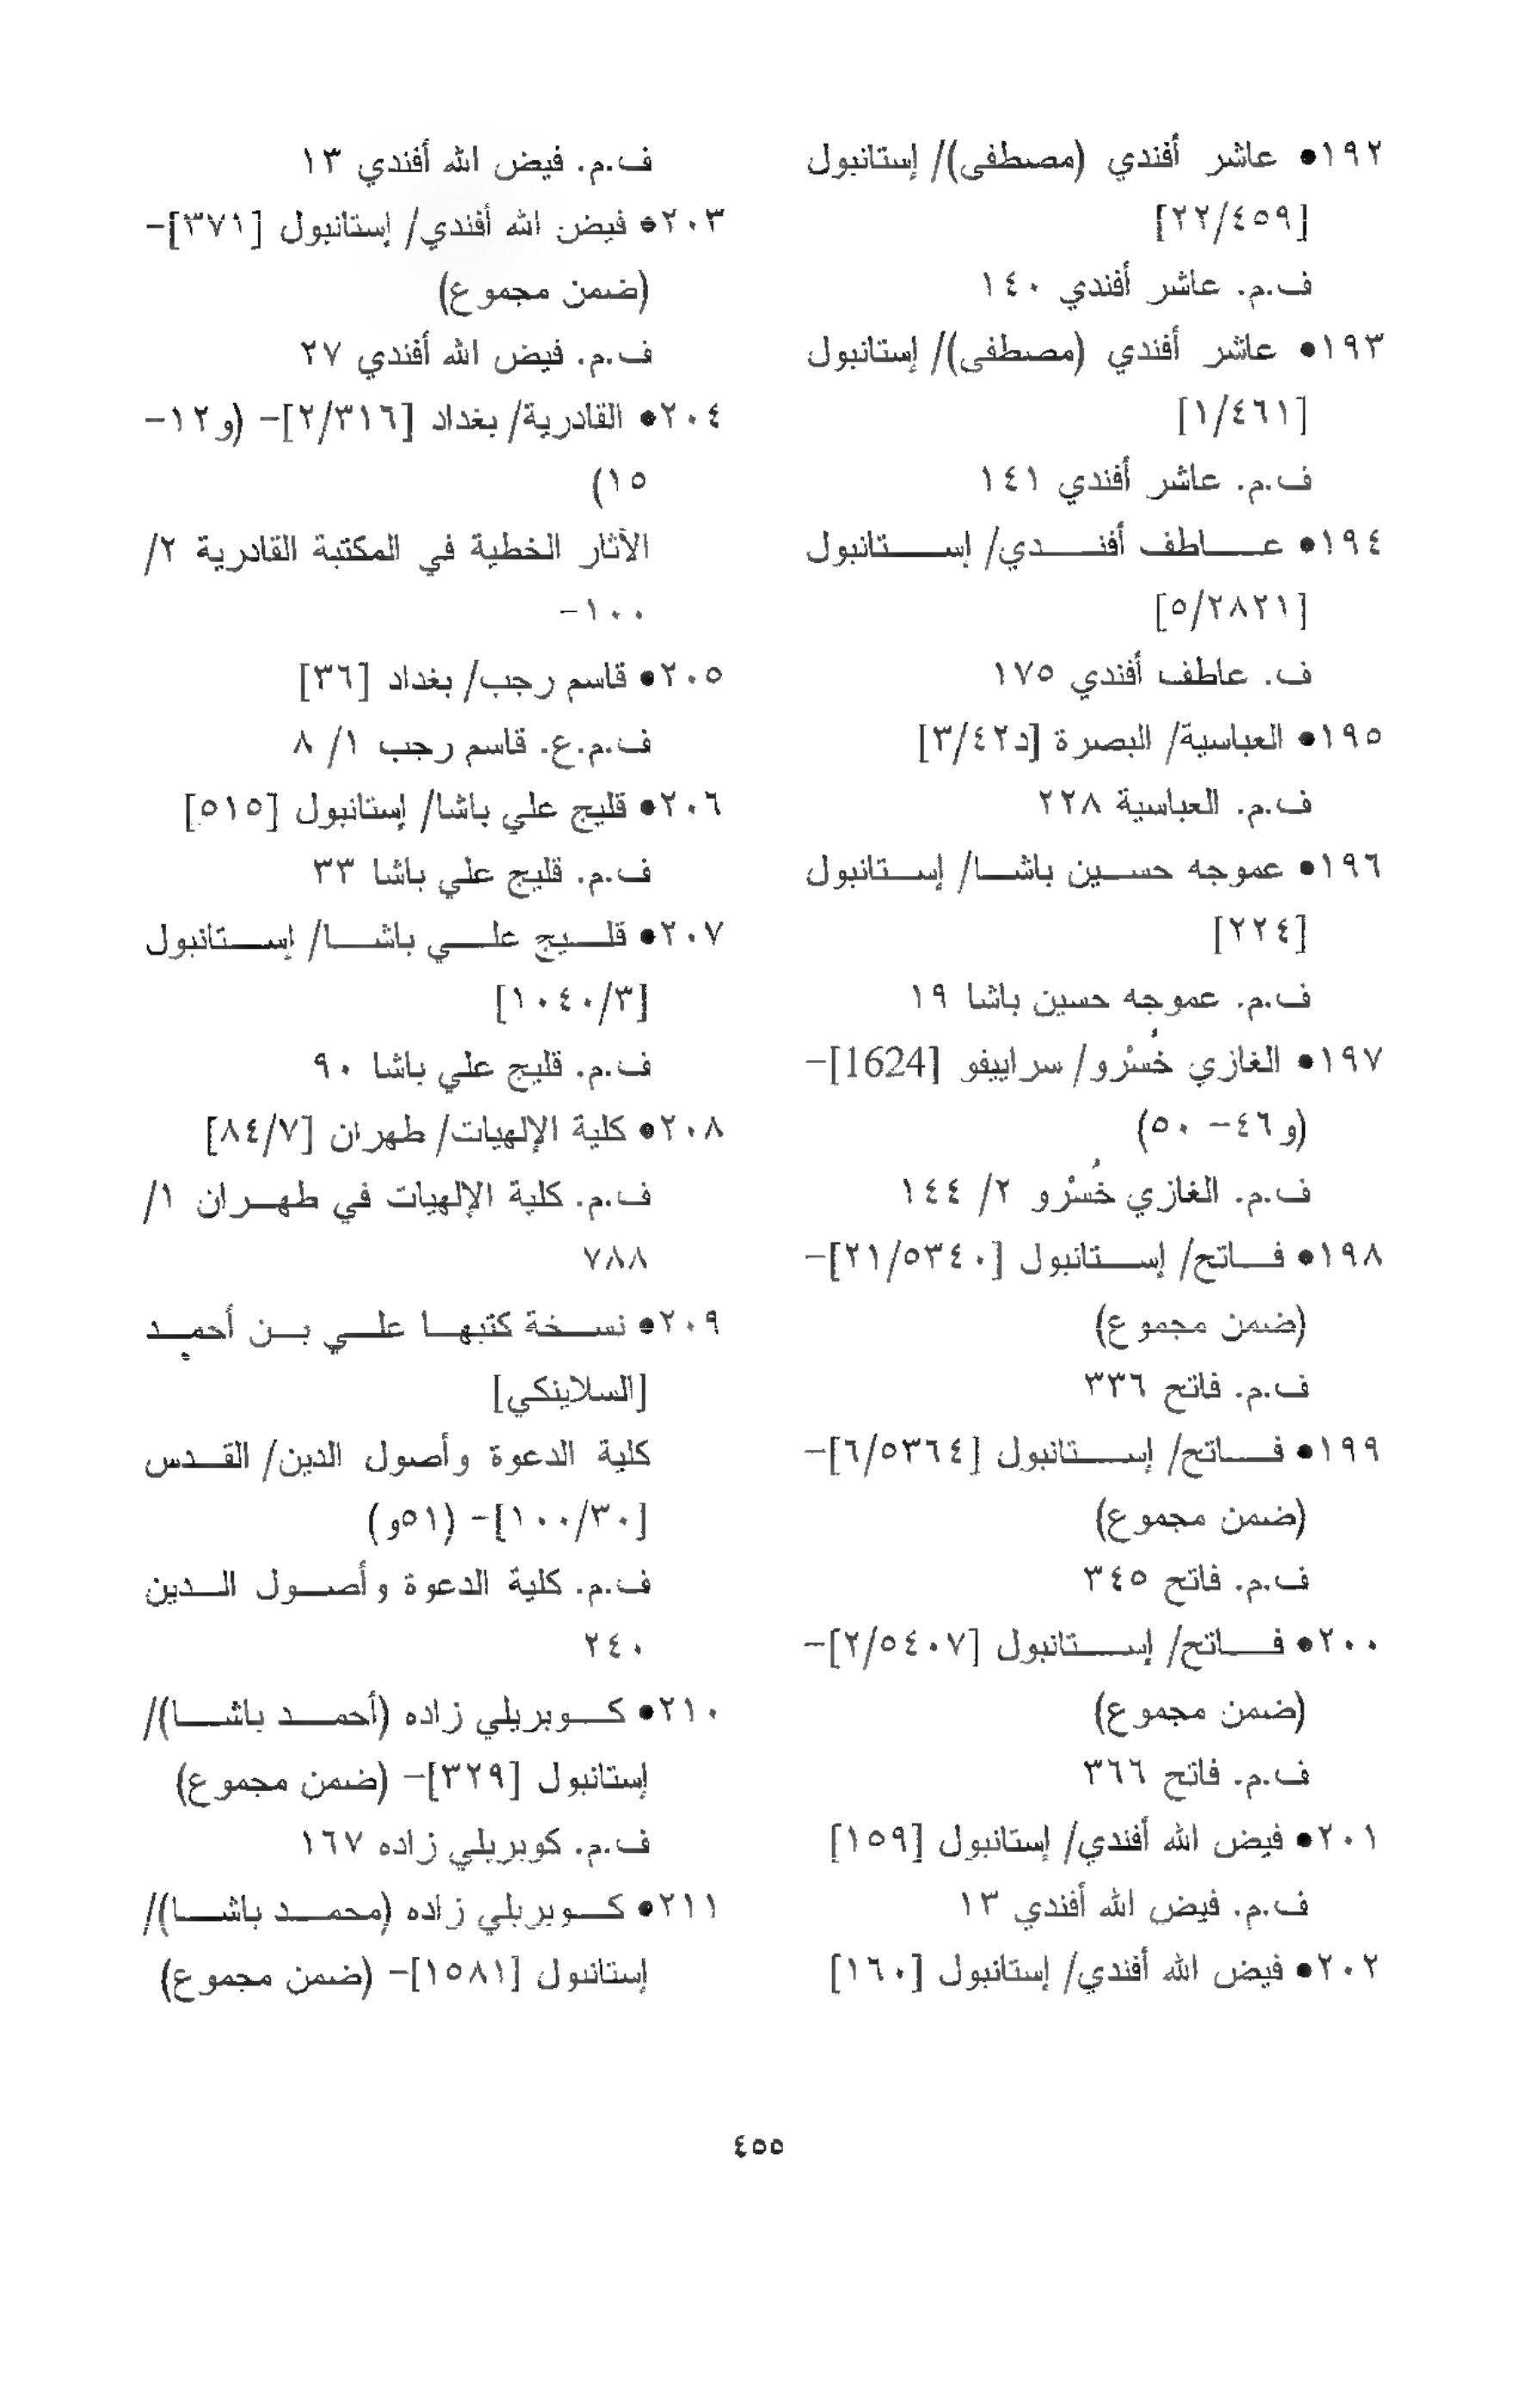 ١٩٢• عاشر أفندي (مصطفى)/ إستانبول
[٢٢/٤٥٩]
ف.م. عاشر أفندي ١٤٠
١٩٣• عاشر أفندي (مصطفى)/ إستانبول
[١/٤٦١]
ف.م. عاشر أفندي ١٤١
١٩٤• عاطف أفندي/ إستانبول
[٥/٢٨٢١]
ف. عاطف أفندي ١٧٥
١٩٥• العباسية/ البصرة [د٣/٤٢]
ف.م. العباسية ٢٢٨
١٩٦• عموجه حسين باشا/ إستانبول
[٢٢٤]
ف.م. عموجه حسين باشا ١٩
١٩٧• الغازي خُسْرو/ سراييفو [1624]-
(و٤٦- ٥٠)
ف.م. الغازي خُسْرو ٢/ ١٤٤
١٩٨• فاتح/ إستانبول [٢١/٥٣٤٠]-
(ضمن مجموع)
ف.م. فاتح ٣٣٦
١٩٩• فاتح/ إستانبول [٦/٥٣٦٤]-
(ضمن مجموع)
ف.م. فاتح ٣٤٥
٢٠٠• فاتح/ إستانبول [٢/٥٤٠٧]-
(ضمن مجموع)
ف.م. فاتح ٣٦٦
٢٠١• فيض الله أفندي/ إستانبول [١٥٩]
ف.م. فيض الله أفندي ١٣
٢٠٢• فيض الله أفندي/ إستانبول [١٦٠]
ف.م. فيض الله أفندي ١٣
٢٠٣• فيض الله أفندي/ إستانبول [٣٧١]-
(ضمن مجموع)
ف.م. فيض الله أفندي ٢٧
٢٠٤• القادرية/ بغداد [٢/٣١٦]- (و١٢-
١٥)
الآثار الخطية في المكتبة القادرية ٢/
١٠٠-
٢٠٥• قاسم رجب/ بغداد [٣٦]
ف.م.ع. قاسم رجب ١/ ٨
٢٠٦• قليج علي باشا/ إستانبول [٥١٥]
ف.م. قليج علي باشا ٣٣
٢٠٧• قليج علي باشا/ إستانبول
[١٠٤٠/٣]
ف.م. قليج علي باشا ٩٠
٢٠٨• كلية الإلهيات/ طهران [٨٤/٧]
ف.م. كلية الإلهيات في طهران ١/
٧٨٨
٢٠٩• نسخة كتبها علي بن أحمد
[السلاينكي]
كلية الدعوة وأصول الدين/ القدس
[١٠٠/٣٠]- (٥١و)
ف.م. كلية الدعوة وأصول الدين
٢٤٠
٢١٠• كوبريلي زاده (أحمد باشا)/
إستانبول [٣٢٩]- (ضمن مجموع)
ف.م. كوبريلي زاده ١٦٧
٢١١• كوبريلي زاده (محمد باشا)/
إستانبول [١٥٨١]- (ضمن مجموع)
٤٥٥